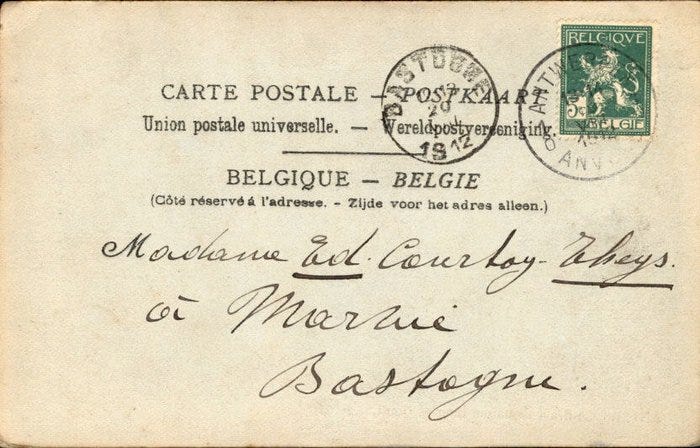 BELGIQUE
5
BELGIE
BASTOGNE
29
1912
ANTWERPEN
1912
ANVERS
CARTE POSTALE – POSTKAART
Union postale universelle. – Wereldpostvereeniging.
BELGIQUE – BELGIE
(Côté réservé á l'adresse. – Zijde voor het adres alleen.)
Madame Ed. Courtoy-Theys.
à Marvie
Bastogne.